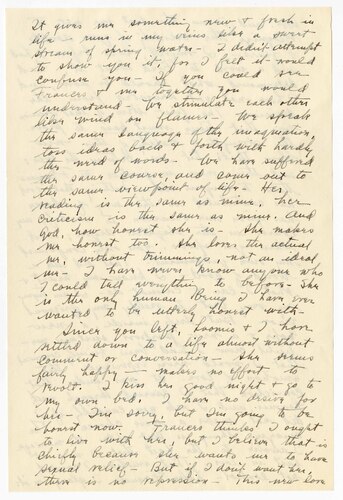 It gives me something new & fresh in
life - runs in my veins like a sweet
stream of spring water - I didn't attempt
to show you it, for I felt it would
confuse you - If you could see
Frances & me together you would
understand - We stimulate each other
like wind on flames - We speak
the same language of the imagination,
toss ideas back & forth with hardly
the need of words - We have suffered
the same course, and come out to
the same viewpoint of life - Her
reading is the same as mine, her
criticism is the same as mine. And
God, how honest she is - She makes
me honest too. She loves the actual
me, without trimmings, not an ideal
me - I have never know anyone who
I could tell everything to before - She
is the only human being I have ever
wanted to be utterly honest with -
Since you left, Loomis & I have
settled down to a life almost without
comment or conversation - She seems
fairly happy - makes no effort to
revolt. I kiss her good night & go to
my own bed. I have no desire for
her - I'm sorry, but I'm going to be
honest now. Frances thinks I ought
to live with her, but I believe that is
chiefly because she wants me to have
sexual relief - But if I don't want her,
there is no repression - This new love